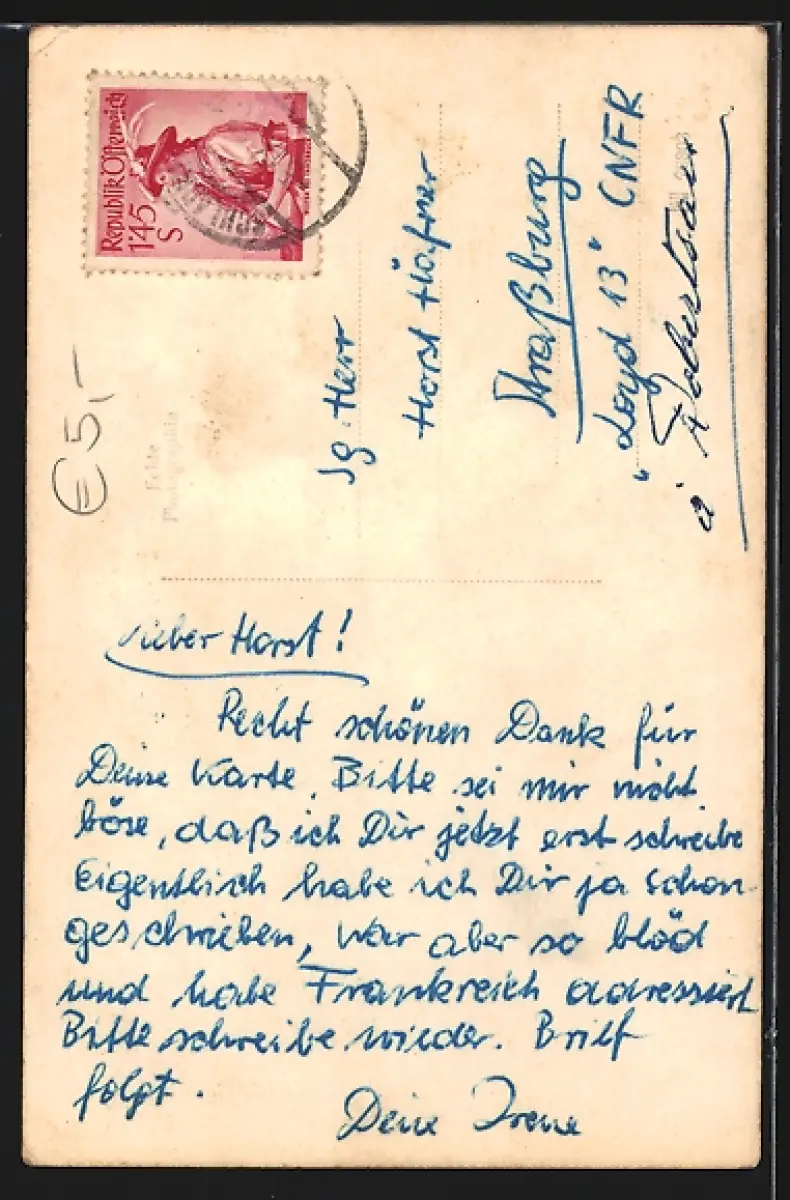 Republik Österreich
1'45
S
€ 5,-
Echte
Photographie
Sg. Herr
Horst Häfner
Straßburg
"Loyd 13" CNFR
à Robertsau
Lieber Horst!
Recht schönen Dank für
Deine Karte. Bitte sei mir nicht
böse, daß ich Dir jetzt erst schreibe
Eigentlich habe ich Dir ja schon
geschrieben, war aber so blöd
und habe Frankreich adressiert
Bitte schreibe wieder. Brief
folgt.
Deine Irene